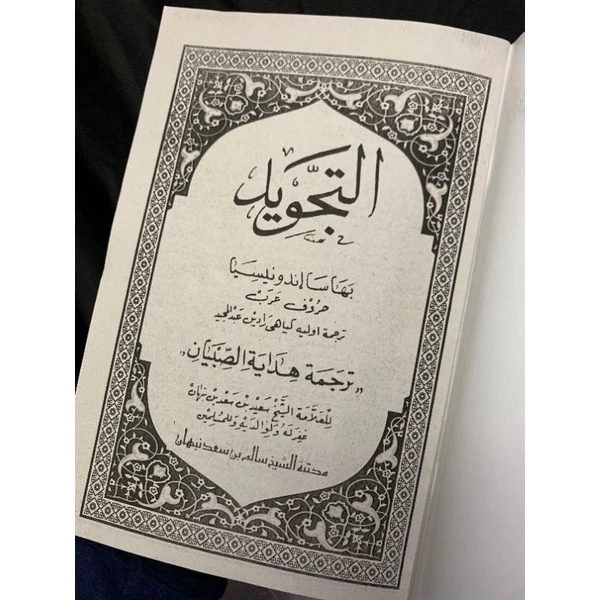 التجويد
بهاسا إندونيسيا
حروف عرب
ترجمة اوليه كياهي رادين عبد المجيد
„ترجمة هداية الصبيان„
للعلامة الشيخ سعيد بن سعد بن نبهان
غفر له ولوالديه وللمسلمين
مكتبة الشيخ سالم بن سعد نبهان